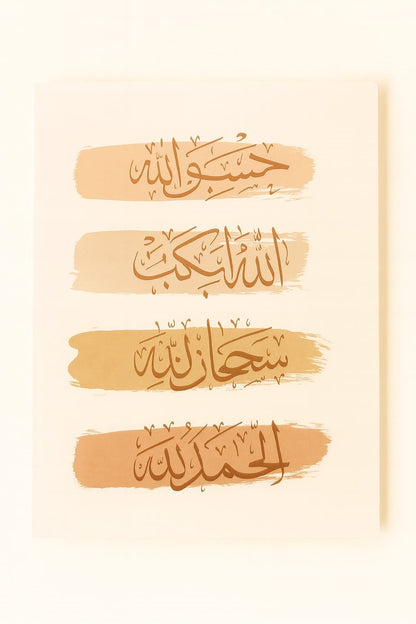 حسبو الله
الله ابكب
سححان لله
الحمد لله